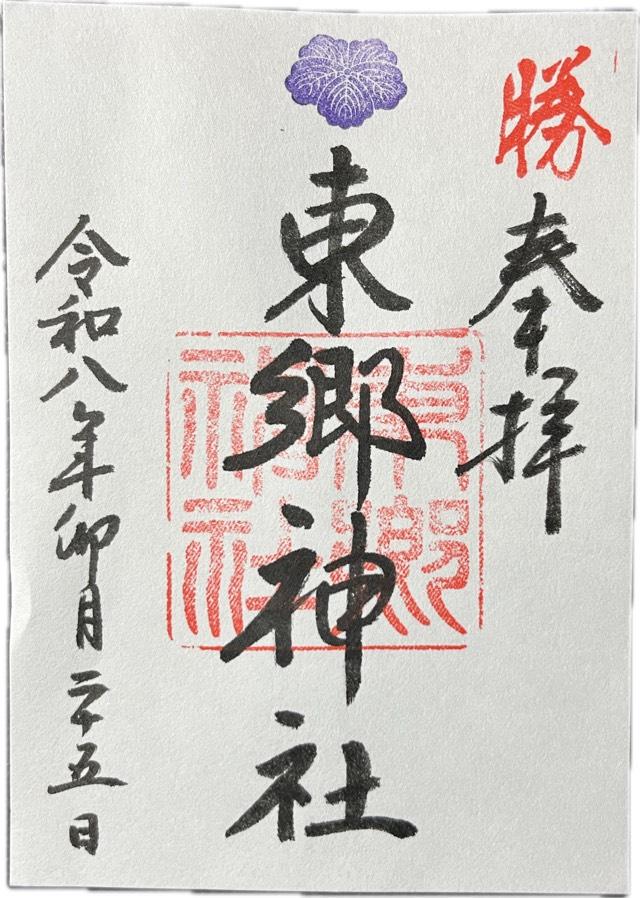 勝
奉拝
東郷神社
東郷神社
令和八年卯月二十五日